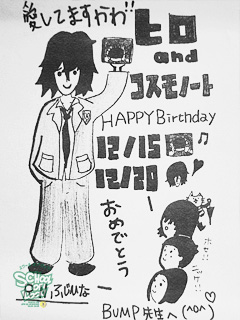 愛してますかわ!!
ヒロ
and
コスモノート
HAPPY Birthday
12/15
12/20
おめでとう
BUMP先生へ(^o^)